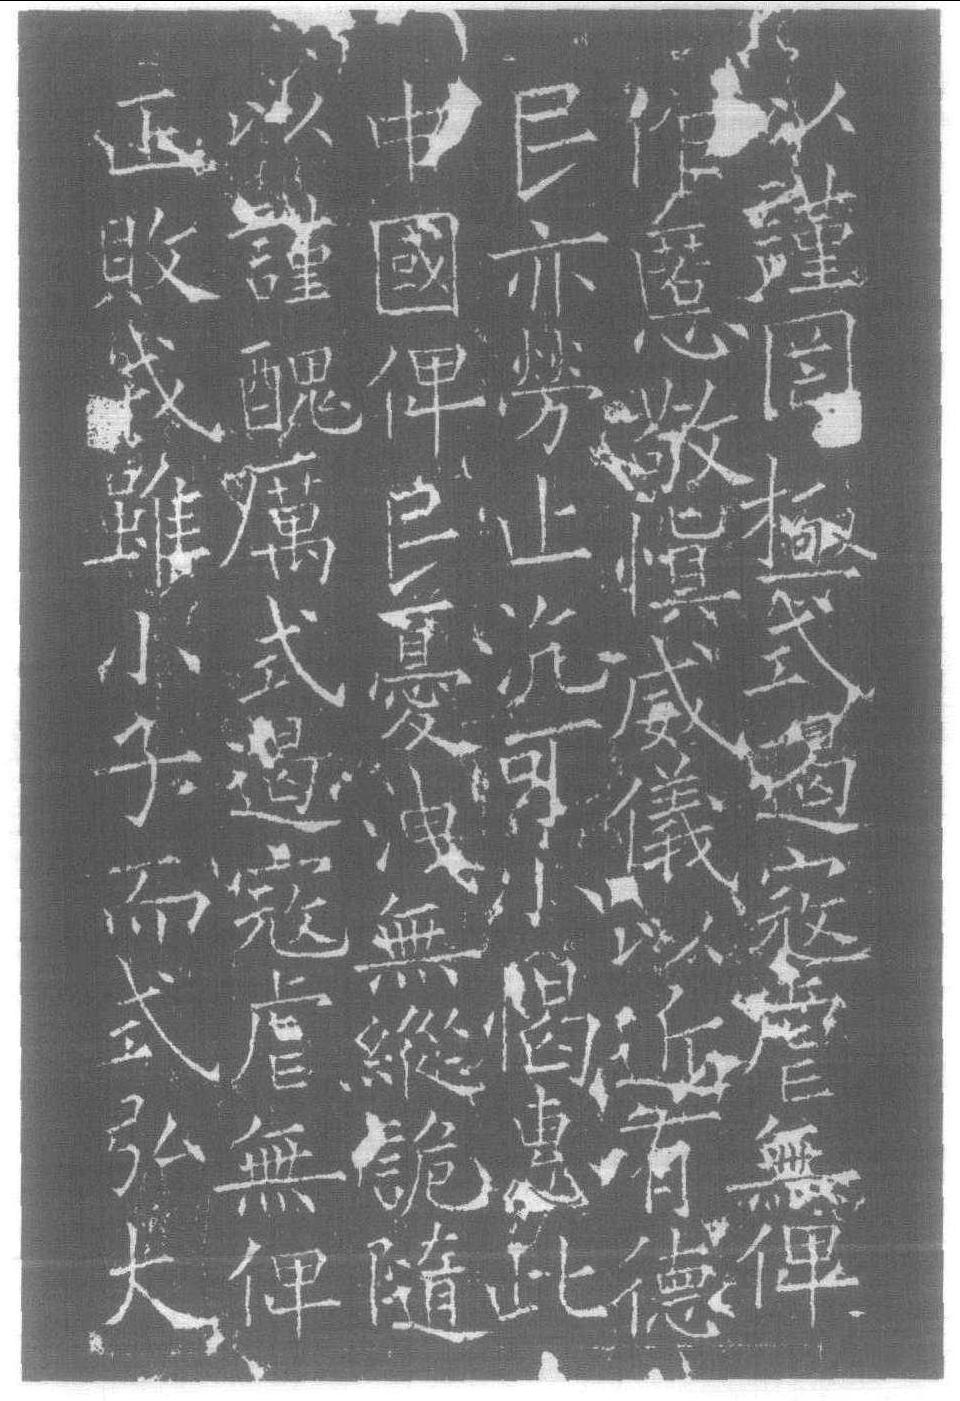 以謹罔極式遏寇虐無俾
作慝敬慎威儀以近有德
民亦勞止汔可小愒惠此
中國俾民憂洩無縱詭隨
以謹醜厲式遏寇虐無俾
正敗戎雖小子而式弘大